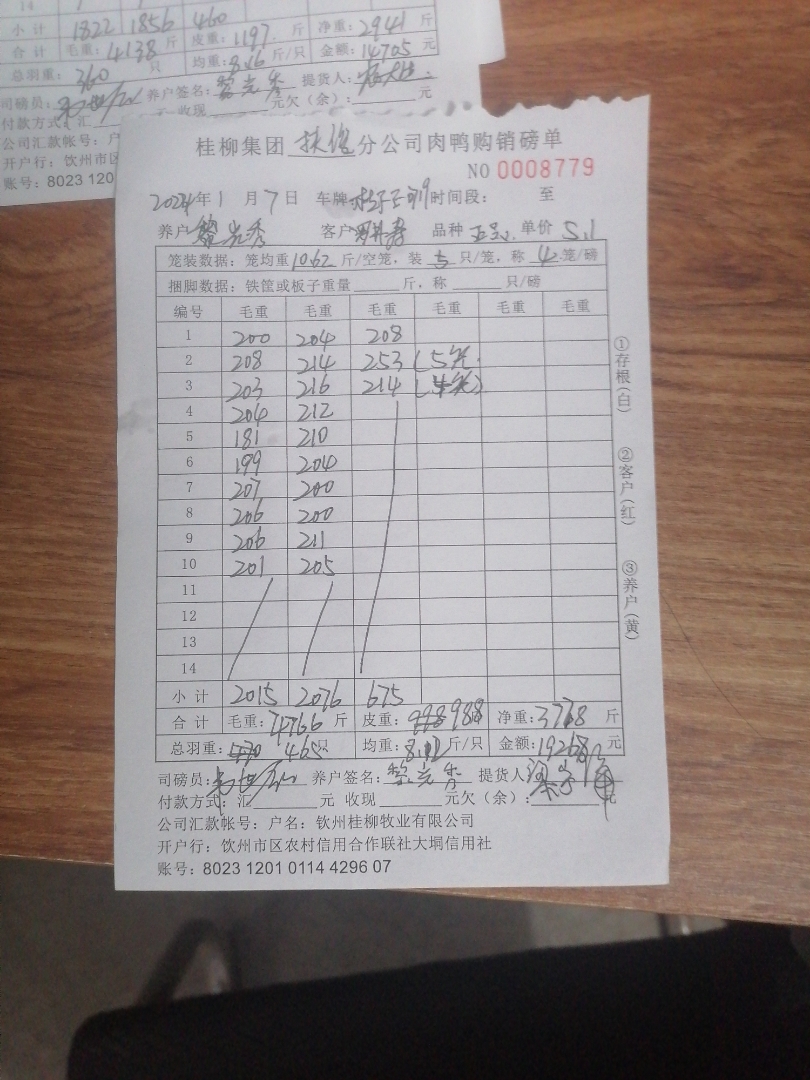 14
小计 1822 1856 460
合计 毛重:4138斤 皮重:1197.斤 净重:2941斤
总羽重:360只 均重:8.16斤/只 金额:14705元
司磅员: 养户签名: 提货人:
付款方式:汇 收现 元欠(余): 元
公司汇款帐号:户
开户行:钦州市区
账号:8023 120
桂柳集团 分公司肉鸭购销磅单
NO 0008779
2024年1月7日 车牌 时间段: 至
养户 客户 品种 单价 5.1
笼装数据:笼均重10.62斤/空笼,装5只/笼,称4笼/磅
捆脚数据:铁筐或板子重量 斤,称 只/磅
编号 毛重 毛重 毛重 毛重 毛重 毛重
1 200 204 208
2 208 214 253 (5笼.
3 203 216 214 (4笼)
4 204 212
5 181 210
6 199 204
7 207 200
8 206 200
9 206 211
10 201 205
11
12
13
14
小计 2015 2076 675
合计 毛重:4766斤 皮重:988 净重:3778斤
总羽重:465只 均重:8.12斤/只 金额:19268元
司磅员: 养户签名: 提货人
付款方式:汇 元 收现 元欠(余): 元
公司汇款帐号:户名:钦州桂柳牧业有限公司
开户行:钦州市区农村信用合作联社大垌信用社
账号:8023 1201 0114 4296 07
①存根(白)
②客户(红)
③养户(黄)